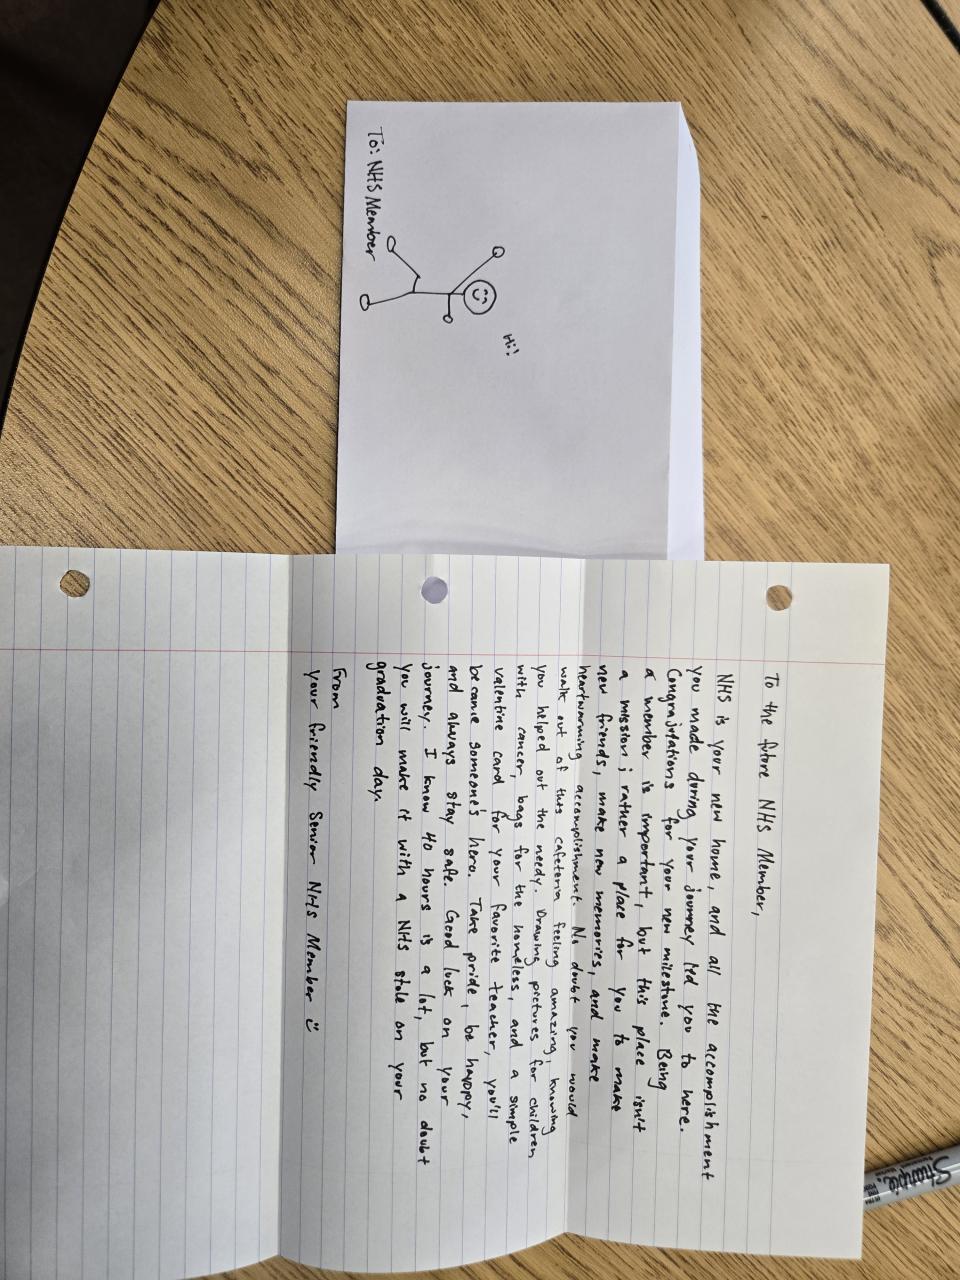 To: NHS Member
Hi!
To the future NHS Member,
NHS is your new home, and all the accomplishment
you made during your journey led you to here.
Congrajutations for your new milestone. Being
a member is important, but this place isn't
a mission; rather a place for you to make
new friends, make new memories, and make
heartwarming accomplishment. No doubt you would
walk out of this cafeteria feeling amazing, knowing
you helped out the needy. Drawing pictures for children
with cancer, bags for the homeless, and a simple
valentine card for your favorite teacher, you'll
became someone's hero. Take pride, be happy,
and always stay safe. Good luck on your
journey. I know 40 hours is a lot, but no doubt
you will make it with a NHS stole on your
graduation day.
From
your friendly Senior NHS Member
Sharpie